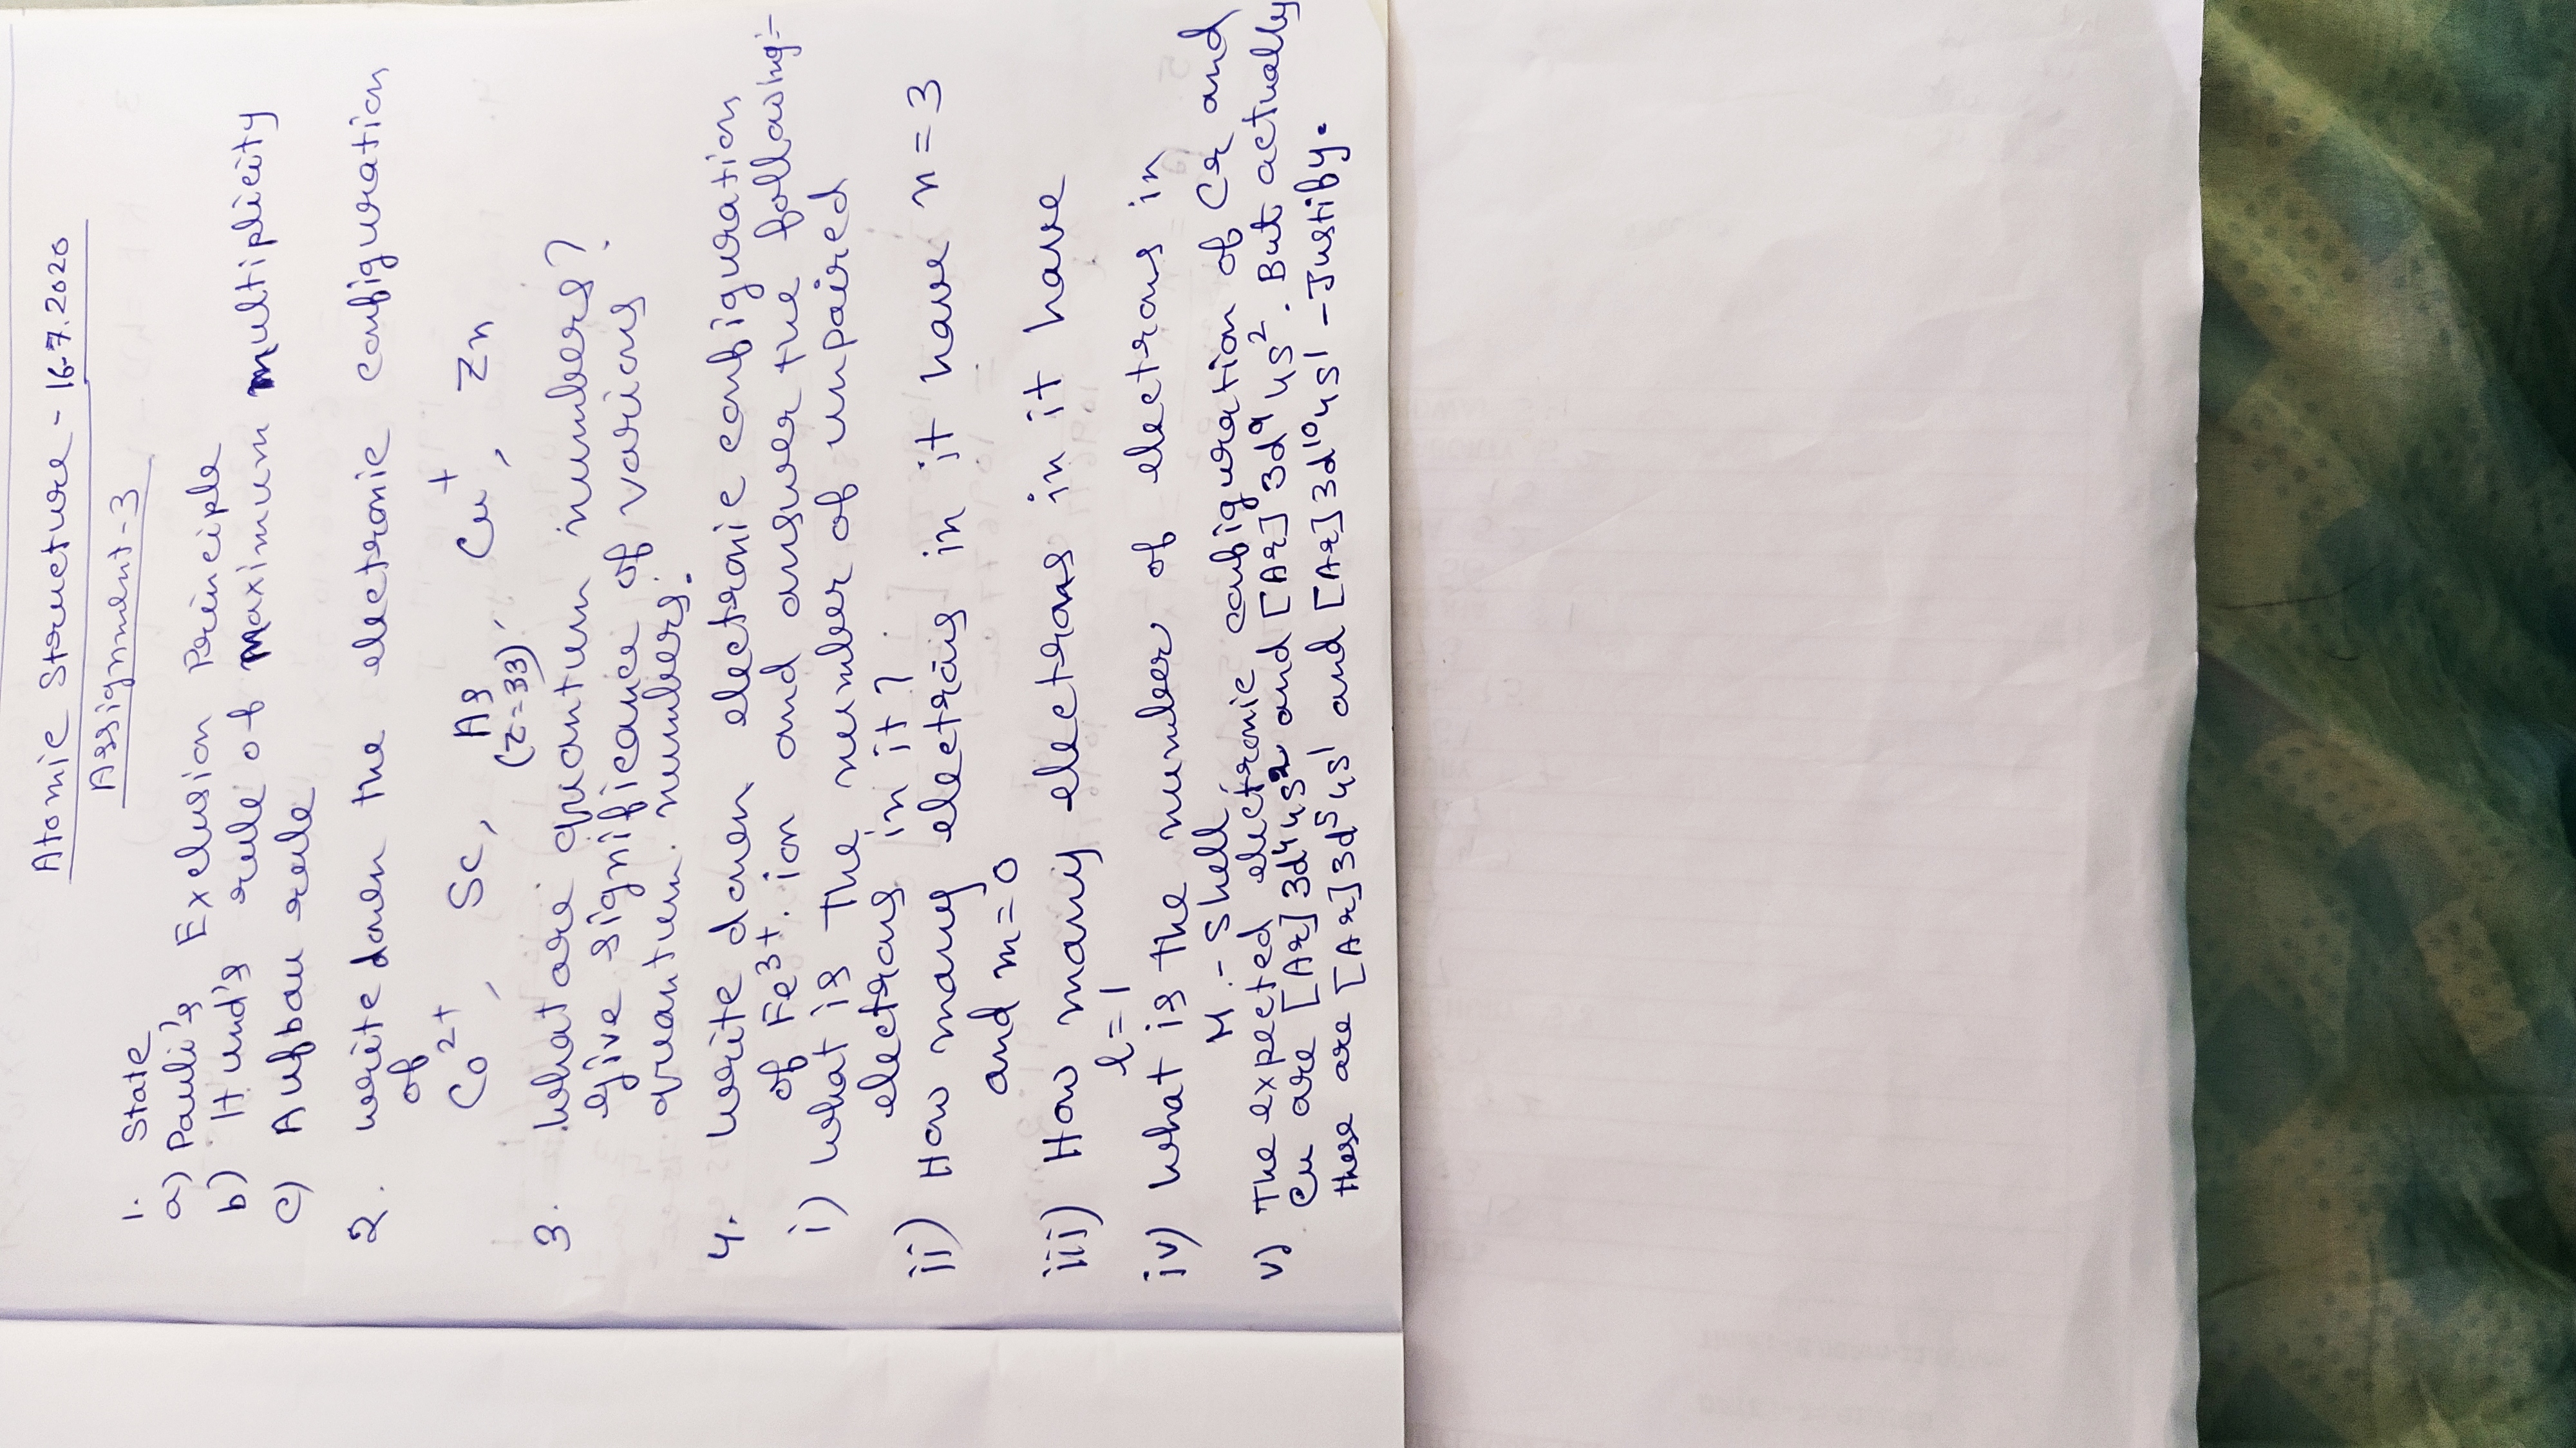 Atomic Structure - 16.7.2020
Assignment-3
1. State
a) Pauli's Exclusion Principle
b) Hund's rule of Maximum Multiplicity
c) Aufbau rule
2. write down the electronic configuration
of
Co²⁺, Sc, As, Cu⁺, Zn
(Z=33)
3. What are quantum numbers?
Give significance of various
quantum numbers.
4. write down electronic configuration
of Fe³⁺ ion and answer the following:-
i) what is the number of unpaired
electrons in it?
ii) How many electrons in it have n=3
and m=0
iii) How many electrons in it have
l=1
iv) what is the number of electrons in
M-Shell
v) The expected electronic configuration of Cr and
Cu are [Ar]3d⁴4s² and [Ar]3d⁹4s². But actually
these are [Ar]3d⁵4s¹ and [Ar]3d¹⁰4s¹ - Justify.